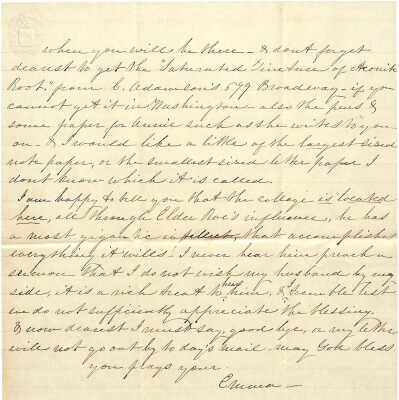 when you will be there - & don't forget
dearest to get the "Saturated Tincture of Aconite
Root," from C. Adamson's 599 Broadway - if you
cannot get it in Washington - also the pens &
some paper for Annie such as she writes to you
on - & I would like a little of the largest sized
note paper, or the smallest sized letter paper I
don't know which it is called.
I am happy to tell you that the college is located
here, all through Elder Roe's influence, he has
a most gigantic intellect, that accomplishes
everything it wills - I never hear him preach a
sermon that I do not wish my husband by my
side, it is a rich treat to hear him, & I tremble lest
we do not sufficiently appreciate the blessing.
& now dearest I must say, good bye, or my letter
will not go out by to day's mail - may God bless
you prays your
Emma -